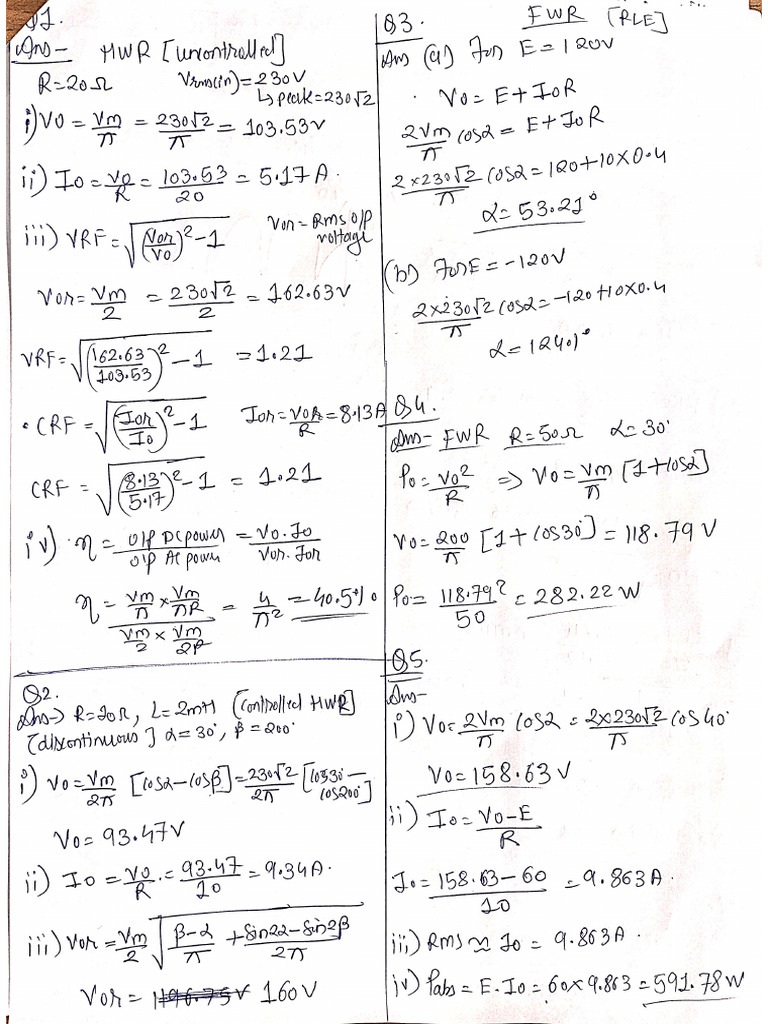 Q1.
Ans- HWR [uncontrolled]
R=20Ω Vrms(in)=230V
↳ peak=230√2
i) V0 = Vm/π = 230√2/π = 103.53V
ii) I0 = V0/R = 103.53/20 = 5.17 A.
iii) VRF = √((Vor/V0)²-1) Vor = Rms o/p voltage
Vor = Vm/2 = 230√2/2 = 162.63V
VRF = √((162.63/103.53)²-1) = 1.21
• CRF = √((Ior/I0)²-1) Ior = Vor/R = 8.13A
CRF = √((8.13/5.17)²-1) = 1.21
iv) η = O/P DC power/O/P AC power = V0.I0/Vor.Ior
η = (Vm/π × Vm/πR)/(Vm/2 × Vm/2R) = 4/π² = 40.5%
Q2.
Ans-> R=10Ω, L=2mH [controlled HWR]
[discontinuous] α=30°, β=200°
i) V0 = Vm/2π [cosα-cosβ] = 230√2/2π [cos30°-cos200°]
V0 = 93.47V
ii) I0 = V0/R = 93.47/10 = 9.34A.
iii) Vor = Vm/2 √(β-α/π + sin2α-sin2β/2π)
Vor = 160V
Q3. FWR [RLE]
Ans (a) For E=120V
. V0 = E+I0R
2Vm/π cosα = E+I0R
2×230√2/π cosα = 120+10×0.4
α = 53.21°
(b) For E=-120V
2×230√2/π cosα = -120+10×0.4
α = 124.1°
Q4.
Ans- FWR R=50Ω α=30°
P0 = V0²/R => V0 = Vm/π [1+cosα]
V0 = 200/π [1+cos30°] = 118.79 V
P0 = 118.79²/50 = 282.22 W
Q5.
Ans-
i) V0 = 2Vm/π cosα = 2×230√2/π cos40°
V0 = 158.63 V
ii) I0 = V0-E/R
I0 = 158.63-60/10 = 9.863A.
iii) Rms ≈ I0 = 9.863A.
iv) Pabs = E.I0 = 60×9.863 = 591.78 W